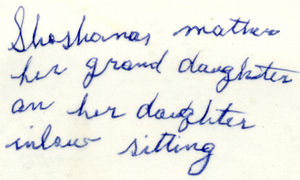 Shoshanas mather
her grand daughter
an her daughter
inlaw sitting